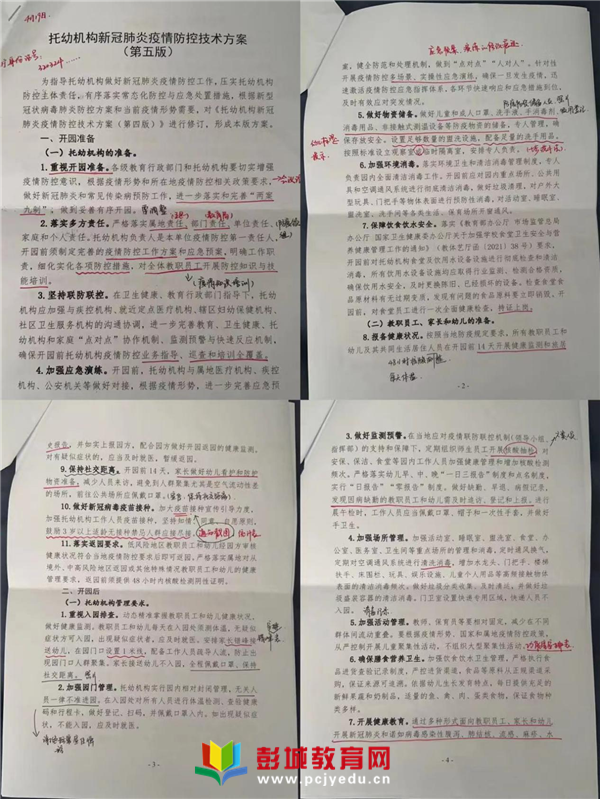 托幼机构新冠肺炎疫情防控技术方案
（第五版）
为指导托幼机构做好新冠肺炎疫情防控工作，压实托幼机构
防控主体责任，有序落实常态化防控与应急处置措施，根据新型
冠状病毒肺炎防控方案和当前疫情防控需要，对《托幼机构新冠
肺炎疫情防控技术方案（第四版）》进行修订，形成本版方案。
一、开园准备
（一）托幼机构的准备。
1.重视开园准备。各级教育行政部门和托幼机构要切实增强
疫情防控意识，根据疫情形势和所在地疫情防控相关政策要求，
做好新冠肺炎和常见传染病预防工作，进一步落实和完善“两案
九制”，做到完善有序开园。
2.落实多方责任。严格落实属地责任、部门责任、单位责任、
家庭和个人责任。托幼机构负责人是本单位疫情防控第一责任人，
开园前须制定完善的疫情防控工作方案和应急预案，明确工作职
责，细化实化各项防控措施，对全体教职员工开展防控知识与技
能培训。
3.坚持联防联控。在卫生健康、教育行政部门指导下，托幼机
构应加强与疾控机构、就近定点医疗机构、辖区妇幼保健机构、
社区卫生服务机构的沟通协调，进一步完善教育、卫生健康、托幼
机构和家庭“点对点”协作机制、监测预警与快速反应机制，
确保开园前托幼机构疫情防控业务指导、巡查和培训全覆盖。
4.加强应急演练。开园前，托幼机构与属地医疗机构、疾控
机构、公安机关等做好对接，根据疫情形势，进一步完善应急预
案，健全防范和处理机制，做到“点对点”“人对人”。针对性
开展疫情防控多场景、实操性应急演练，确保一旦发生疫情，迅
速激活疫情防控应急指挥体系，各环节快速响应和应急措施到位，
及时有效应对突发情况。
5.做好物资储备。做好儿童和成人口罩、洗手液、手消毒剂、
消毒用品、非接触式测温设备等防疫物资的储备，专人管理，确
保存放安全。设置足够数量的盥洗设施，配备足量的洗手用品。
按照标准设立观察室或临时隔离室，安排专人负责。
6.加强环境消毒。落实环境卫生和清洁消毒管理制度，专人
负责园内全面清洁消毒工作。开园前应对园内重点场所、公共用
具和空调通风系统进行彻底清洁消毒，做好垃圾清理。对户外大
型玩具、门把手等物体表面进行预防性消毒，对活动室、睡眠室、
盥洗室、洗手间等各类生活、保育场所开窗通风。
7.保障饮食饮水安全。落实《教育部办公厅 市场监管总局
办公厅 国家卫生健康委办公厅关于加强学校食堂卫生安全与营养
健康管理工作的通知》（教体艺厅函〔2021〕38 号）要求，
开园前对托幼机构食堂及饮用水设备设施进行彻底检查和清洁
消毒。所有饮用水设备设施均应取得行业鉴测、检测合格资质，
确保饮用水安全，及时更换陈旧、已经损坏的设备。检查食堂食
品原材料有无过期变质，发现有问题的食品原材料要立即销毁。开
园前，对食堂员工进行一次全面健康检查，持证上岗。
（二）教职员工、家长和幼儿的准备。
8.报备健康状况。按照当地防疫规定要求，所有教职员工和
幼儿及其共同生活居住人员在开园前 14 天开展健康监测和旅居
- 2 -
史报告，并如实上报园方。配合园方做好开园返园的健康监测，
对有疑似症状的，应当及时就医，暂缓返园。
9.保持社交距离。开园前 14 天，家长做好幼儿看护和防护
物资准备。减少人员来访，避免到人群聚集尤其是空气流动性差
的场所，前往公共场所应佩戴口罩。
10.做好新冠病毒疫苗接种。加大疫苗接种宣传引导力度，
加强托幼机构工作人员疫苗接种，坚持知情、同意、自愿原则，
鼓励 3 岁以上适龄无接种禁忌人群应接尽接。
11.落实返园要求。低风险地区教职员工和幼儿经园方审核
健康状况符合当地疫情管理要求后即可返园。严格落实属地对从
境外、中高风险地区返园或其他特殊情况教职员工和幼儿的健康
管理要求，返园前须提供 48 小时内核酸检测阴性证明。
二、开园后
（一）托幼机构管理要求。
1.重视入园排查。动态精准掌握教职员工和幼儿健康状况，
做好健康监测。教职员工和幼儿每天在入园处须测体温，无疑似
症状方可入园，出现疑似症状者，应及时就医。安排家长错峰接
送幼儿，在园门口设置 1 米线，配备工作人员疏导人流，防止出
现园门口人群聚集。家长接送幼儿不入园，全程佩戴口罩，保持
社交距离。
2.加强园门管理。托幼机构实行园内相对封闭管理，无关人
员一律不准进园。在入园处对所有人员进行体温检测、查验健康
码和行程卡，做好登记、扫码，并佩戴口罩入内。如出现疑似症
状，不能入园，应及时就医。
- 3 -
3.做好监测预警。在当地应对疫情联防联控机制（领导小组、
指挥部）的支持和保障下，定期组织师生员工开展核酸抽检。对
安保、保洁、食堂等园内工作人员加强健康管理和增加核酸检测
频次。严格落实早、中、晚“一日三报告”制度和点名制度，
实行“日报告”“零报告”制度，做好缺勤、早退、病假记录，
发现因病缺勤的教职员工和幼儿需及时追访、登记和上报。进行
晨午检时，工作人员应当佩戴口罩、帽子和一次性手套，并做好
手卫生。
4.加强场所管理。加强活动室、睡眠室、盥洗室、食堂、办
公室、医务室、卫生间等重点场所的管理和消毒，定时通风换气，
定期对空调通风系统进行清洗消毒，增加水龙头、门把手、楼梯
扶手、床围栏、玩具、娱乐设施、儿童个人用品等高频接触物体
表面的清洁消毒频次。做好垃圾分类收集，及时清运，并做好垃
圾盛装容器的清洁消毒。门卫室设置快递专用区域，快递人员不
入园。
5.加强活动管理。教师、保育员等要相对固定，减少在不同
群体间流动查量。要根据疫情形势、国家和属地疫情防控政策，
从严控制开展儿童聚集性活动，不组织大型聚集性活动。
6.确保膳食营养卫生。加强饮食饮水卫生管理，严格执行食
品进货查验记录制度，严控进货渠道，食品等原料从正规渠道采
购，保证来源可追溯。依据幼儿生长发育特点，每日提供充足的
新鲜果蔬和奶制品，适量的鱼、禽、肉、蛋类食物，保证食物种
类多样。
7.开展健康教育。通过多种形式面向教职员工、家长和幼儿
开展新冠肺炎和诺如病毒感染性腹泻、肺结核、流感、麻疹、水
- 4 -
彭城教育网
www.pcjyedu.cn